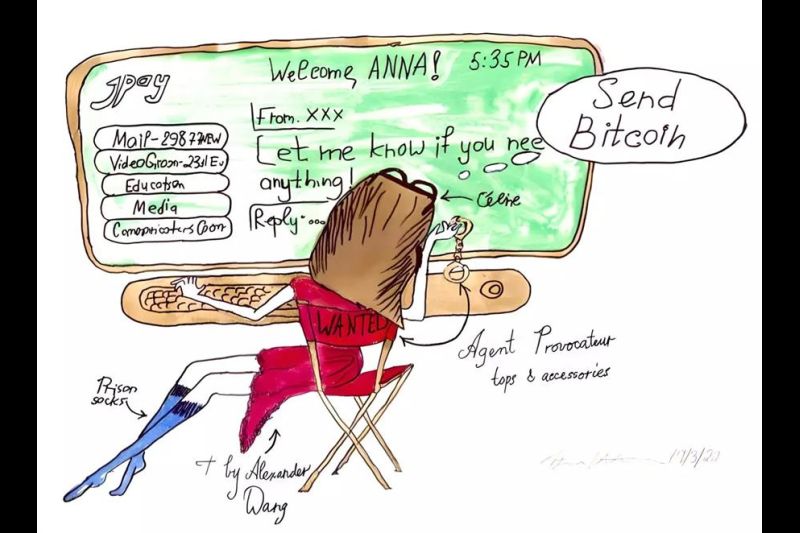 jpay
Welcome, ANNA!
5:35 PM
Send
Bitcoin
Mail-2987 NEW
Education
Media
From. XXX
Let me know if you nee
anything!
Reply....
Céline
WANTED
Agent Provocateur
tops & accessories
Prison
socks
T by Alexander
Wang